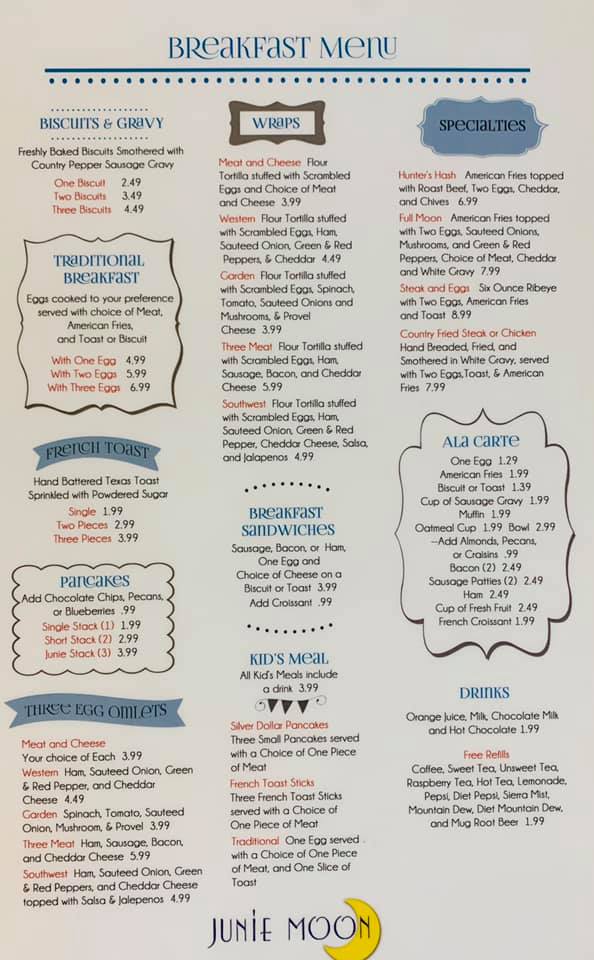 Breakfast Menu
Biscuits & Gravy
Freshly Baked Biscuits Smothered with
Country Pepper Sausage Gravy
One Biscuit 2.49
Two Biscuits 3.49
Three Biscuits 4.49
Traditional
Breakfast
Eggs cooked to your preference
served with choice of Meat,
American Fries,
and Toast or Biscuit
With One Egg 4.99
With Two Eggs 5.99
With Three Eggs 6.99
French Toast
Hand Battered Texas Toast
Sprinkled with Powdered Sugar
Single 1.99
Two Pieces 2.99
Three Pieces 3.99
Pancakes
Add Chocolate Chips, Pecans,
or Blueberries .99
Single Stack (1) 1.99
Short Stack (2) 2.99
Junie Stack (3) 3.99
Three Egg Omlets
Meat and Cheese
Your choice of Each 3.99
Western Ham, Sauteed Onion, Green
& Red Pepper, and Cheddar
Cheese 4.49
Garden Spinach, Tomato, Sauteed
Onion, Mushroom, & Provel 3.99
Three Meat Ham, Sausage, Bacon,
and Cheddar Cheese 5.99
Southwest Ham, Sauteed Onion, Green
& Red Peppers, and Cheddar Cheese
topped with Salsa & Jalepenos 4.99
Wraps
Meat and Cheese Flour
Tortilla stuffed with Scrambled
Eggs and Choice of Meat
and Cheese 3.99
Western Flour Tortilla stuffed
with Scrambled Eggs, Ham,
Sauteed Onion, Green & Red
Peppers, & Cheddar 4.49
Garden Flour Tortilla stuffed
with Scrambled Eggs, Spinach,
Tomato, Sauteed Onions and
Mushrooms, & Provel
Cheese 3.99
Three Meat Flour Tortilla stuffed
with Scrambled Eggs, Ham,
Sausage, Bacon, and Cheddar
Cheese 5.99
Southwest Flour Tortilla stuffed
with Scrambled Eggs, Ham,
Sauteed Onion, Green & Red
Pepper, Cheddar Cheese, Salsa,
and Jalapenos 4.99
Breakfast
Sandwiches
Sausage, Bacon, or Ham,
One Egg and
Choice of Cheese on a
Biscuit or Toast 3.99
Add Croissant .99
Kid's Meal
All Kid's Meals include
a drink 3.99
Silver Dollar Pancakes
Three Small Pancakes served
with a Choice of One Piece
of Meat
French Toast Sticks
Three French Toast Sticks
served with a Choice of
One Piece of Meat
Traditional One Egg served
with a Choice of One Piece
of Meat, and One Slice of
Toast
Specialties
Hunter's Hash American Fries topped
with Roast Beef, Two Eggs, Cheddar,
and Chives 6.99
Full Moon American Fries topped
with Two Eggs, Sauteed Onions,
Mushrooms, and Green & Red
Peppers, Choice of Meat, Cheddar
and White Gravy 7.99
Steak and Eggs Six Ounce Ribeye
with Two Eggs, American Fries
and Toast 8.99
Country Fried Steak or Chicken
Hand Breaded, Fried, and
Smothered in White Gravy, served
with Two Eggs,Toast, & American
Fries 7.99
Ala Carte
One Egg 1.29
American Fries 1.99
Biscuit or Toast 1.39
Cup of Sausage Gravy 1.99
Muffin 1.99
Oatmeal Cup 1.99 Bowl 2.99
--Add Almonds, Pecans,
or Craisins .99
Bacon (2) 2.49
Sausage Patties (2) 2.49
Ham 2.49
Cup of Fresh Fruit 2.49
French Croissant 1.99
Drinks
Orange Juice, Milk, Chocolate Milk
and Hot Chocolate 1.99
Free Refills
Coffee, Sweet Tea, Unsweet Tea,
Raspberry Tea, Hot Tea, Lemonade,
Pepsi, Diet Pepsi, Sierra Mist,
Mountain Dew, Diet Mountain Dew,
and Mug Root Beer 1.99
Junie Moon